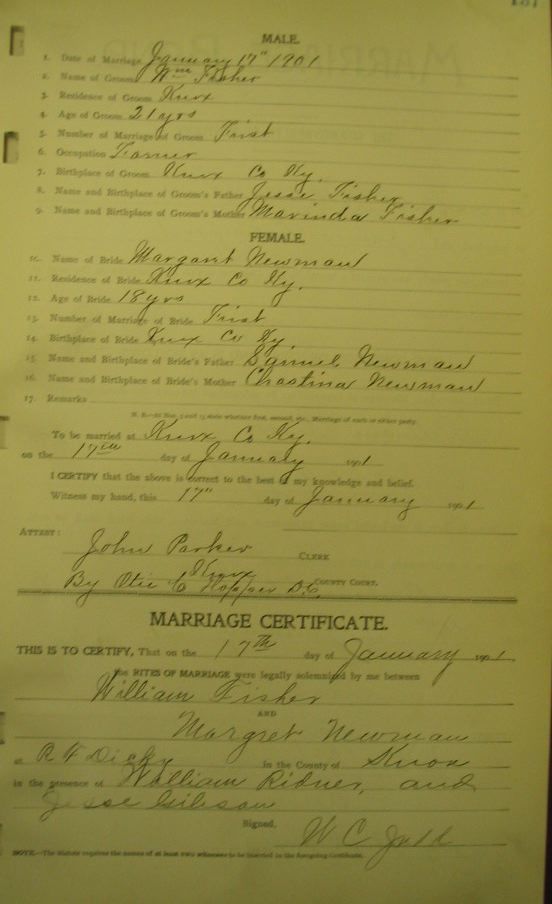 MALE.
1. Date of Marriage January 17" 1901
2. Name of Groom Wm Fisher
3. Residence of Groom Knox
4. Age of Groom 21 yrs
5. Number of Marriage of Groom First
6. Occupation Farmer
7. Birthplace of Groom Knox Co Ky.
8. Name and Birthplace of Groom's Father Jesse Fisher
9. Name and Birthplace of Groom's Mother Marinda Fisher
FEMALE.
10. Name of Bride Margaret Newman
11. Residence of Bride Knox Co Ky.
12. Age of Bride 18 yrs
13. Number of Marriage of Bride First
14. Birthplace of Bride Knox Co Ky.
15. Name and Birthplace of Bride's Father Samuel Newman
16. Name and Birthplace of Bride's Mother Chrostina Newman
17. Remarks
N. B.—At Nos. 5 and 13 state whether first, second, etc., Marriage of each or either party.
To be married at Knox Co Ky.
on the 17th day of January 1901
I CERTIFY that the above is correct to the best of my knowledge and belief.
Witness my hand, this 17" day of January 1901
ATTEST:
John Parker CLERK
Knox COUNTY COURT.
By Otis C Hopper D.C.
MARRIAGE CERTIFICATE.
THIS IS TO CERTIFY, That on the 17th day of January 1901
the RITES OF MARRIAGE were legally solemnized by me between
William Fisher
AND
Margret Newman
at R F Dicky in the County of Knox
in the presence of William Ridner, and
Jesse Gibson
Signed, W C
NOTE.—The Statute requires the names of at least two witnesses to be inserted in the foregoing Certificate.